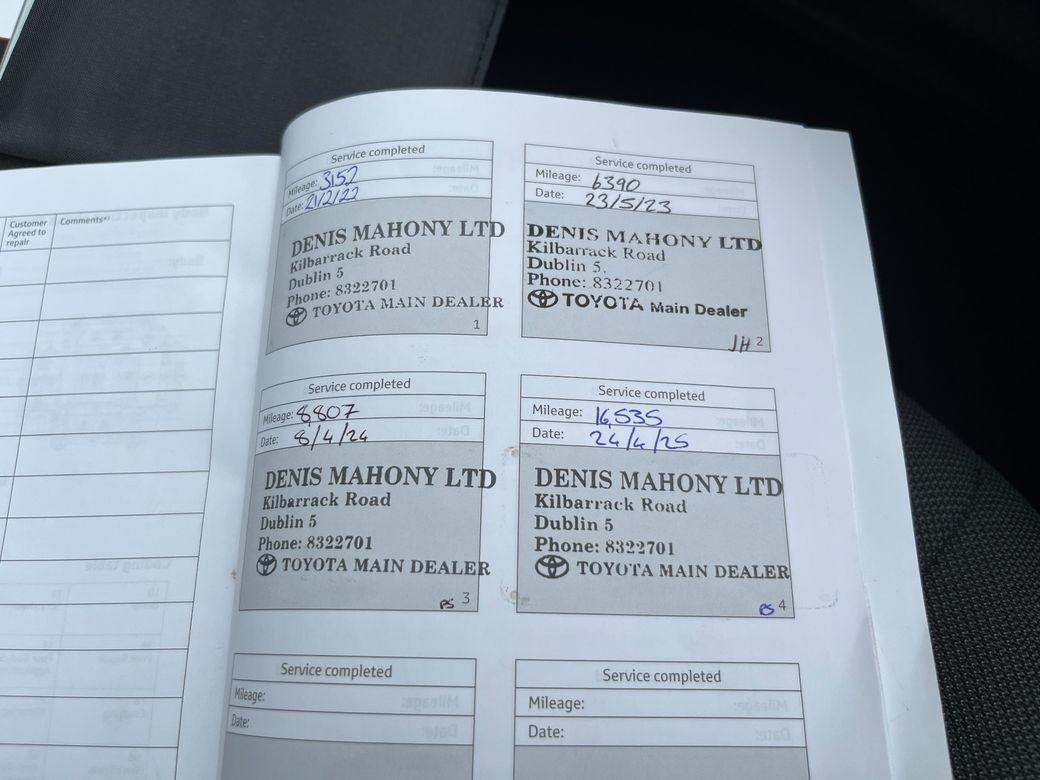 Customer
Agreed to
repair
Comments*¹
Service completed
Mileage: 3152
Date: 21/2/22
DENIS MAHONY LTD
Kilbarrack Road
Dublin 5
Phone: 8322701
TOYOTA MAIN DEALER
1
Service completed
Mileage: 6390
Date: 23/5/23
DENIS MAHONY LTD
Kilbarrack Road
Dublin 5.
Phone: 8322701
TOYOTA Main Dealer
JH 2
Service completed
Mileage: 8,807
Date: 8/4/24
DENIS MAHONY LTD
Kilbarrack Road
Dublin 5
Phone: 8322701
TOYOTA MAIN DEALER
PS 3
Service completed
Mileage: 16,535
Date: 24/4/25
DENIS MAHONY LTD
Kilbarrack Road
Dublin 5
Phone: 8322701
TOYOTA MAIN DEALER
PS 4
Service completed
Mileage:
Date:
Service completed
Mileage:
Date: